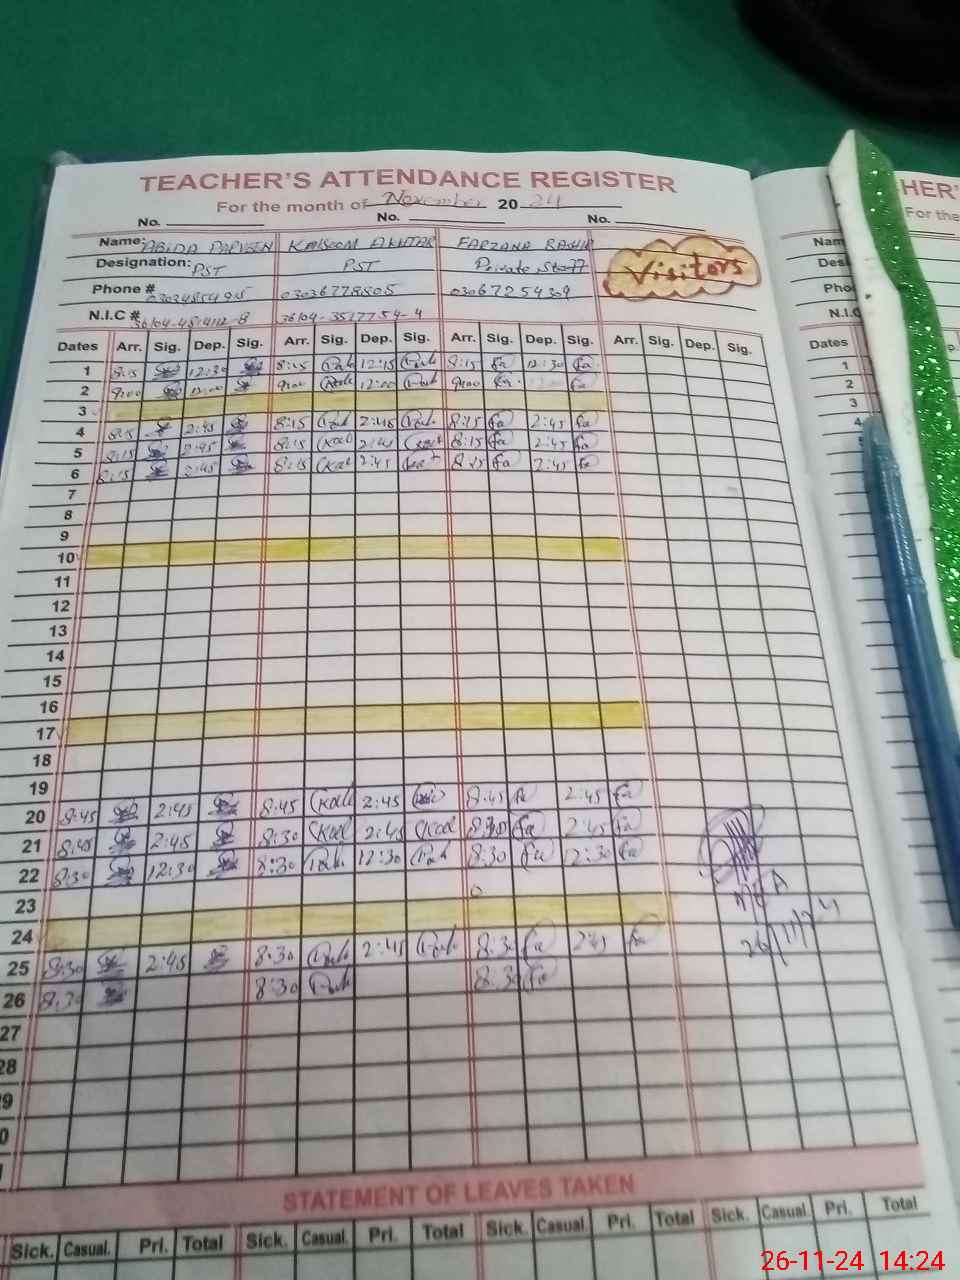 TEACHER'S ATTENDANCE REGISTER
For the month of November 2024
No. No. No.
Name: ABIDA PARVEEN KALSOOM AKHTAR FARZANA RASHID
Visitors
Designation: PST PST Private Staff
Phone # 03036778805 03067254309
N.I.C #
Dates Arr. Sig. Dep. Sig. Arr. Sig. Dep. Sig. Arr. Sig. Dep. Sig. Arr. Sig. Dep. Sig.
1 8:15 12:30 8:15 12:15 8:15 fa 12:30 fa
2 9:00 12:00 9:00 12:00 9:00 fa fa
3
4 8:15 2:45 8:15 2:45 8:15 fa 2:45 fa
5 8:15 2:45 8:15 2:45 8:15 fa 2:45 fa
6 8:15 2:45 8:15 2:45 8:15 fa 2:45 fa
7
8
9
10
11
12
13
14
15
16
17
18
19
20 8:45 2:45 8:45 2:45 8:45 fa 2:45 fa
21 8:45 2:45 8:30 2:45 8:30 fa 2:45 fa
22 8:30 12:30 8:30 12:30 8:30 fa 12:30 fa
23
24
26/11/24
25 8:30 2:45 8:30 2:45 8:30 fa 2:45 fa
26 8:30 8:30 8:30 fa
27
28
STATEMENT OF LEAVES TAKEN
Sick. Casual. Pri. Total Sick. Casual. Pri. Total Sick. Casual. Pri. Total Sick. Casual. Pri. Total
HER'
For the
Nam
Des
Pho
N.I.C
Dates
1
2
3
4
26-11-24 14:24